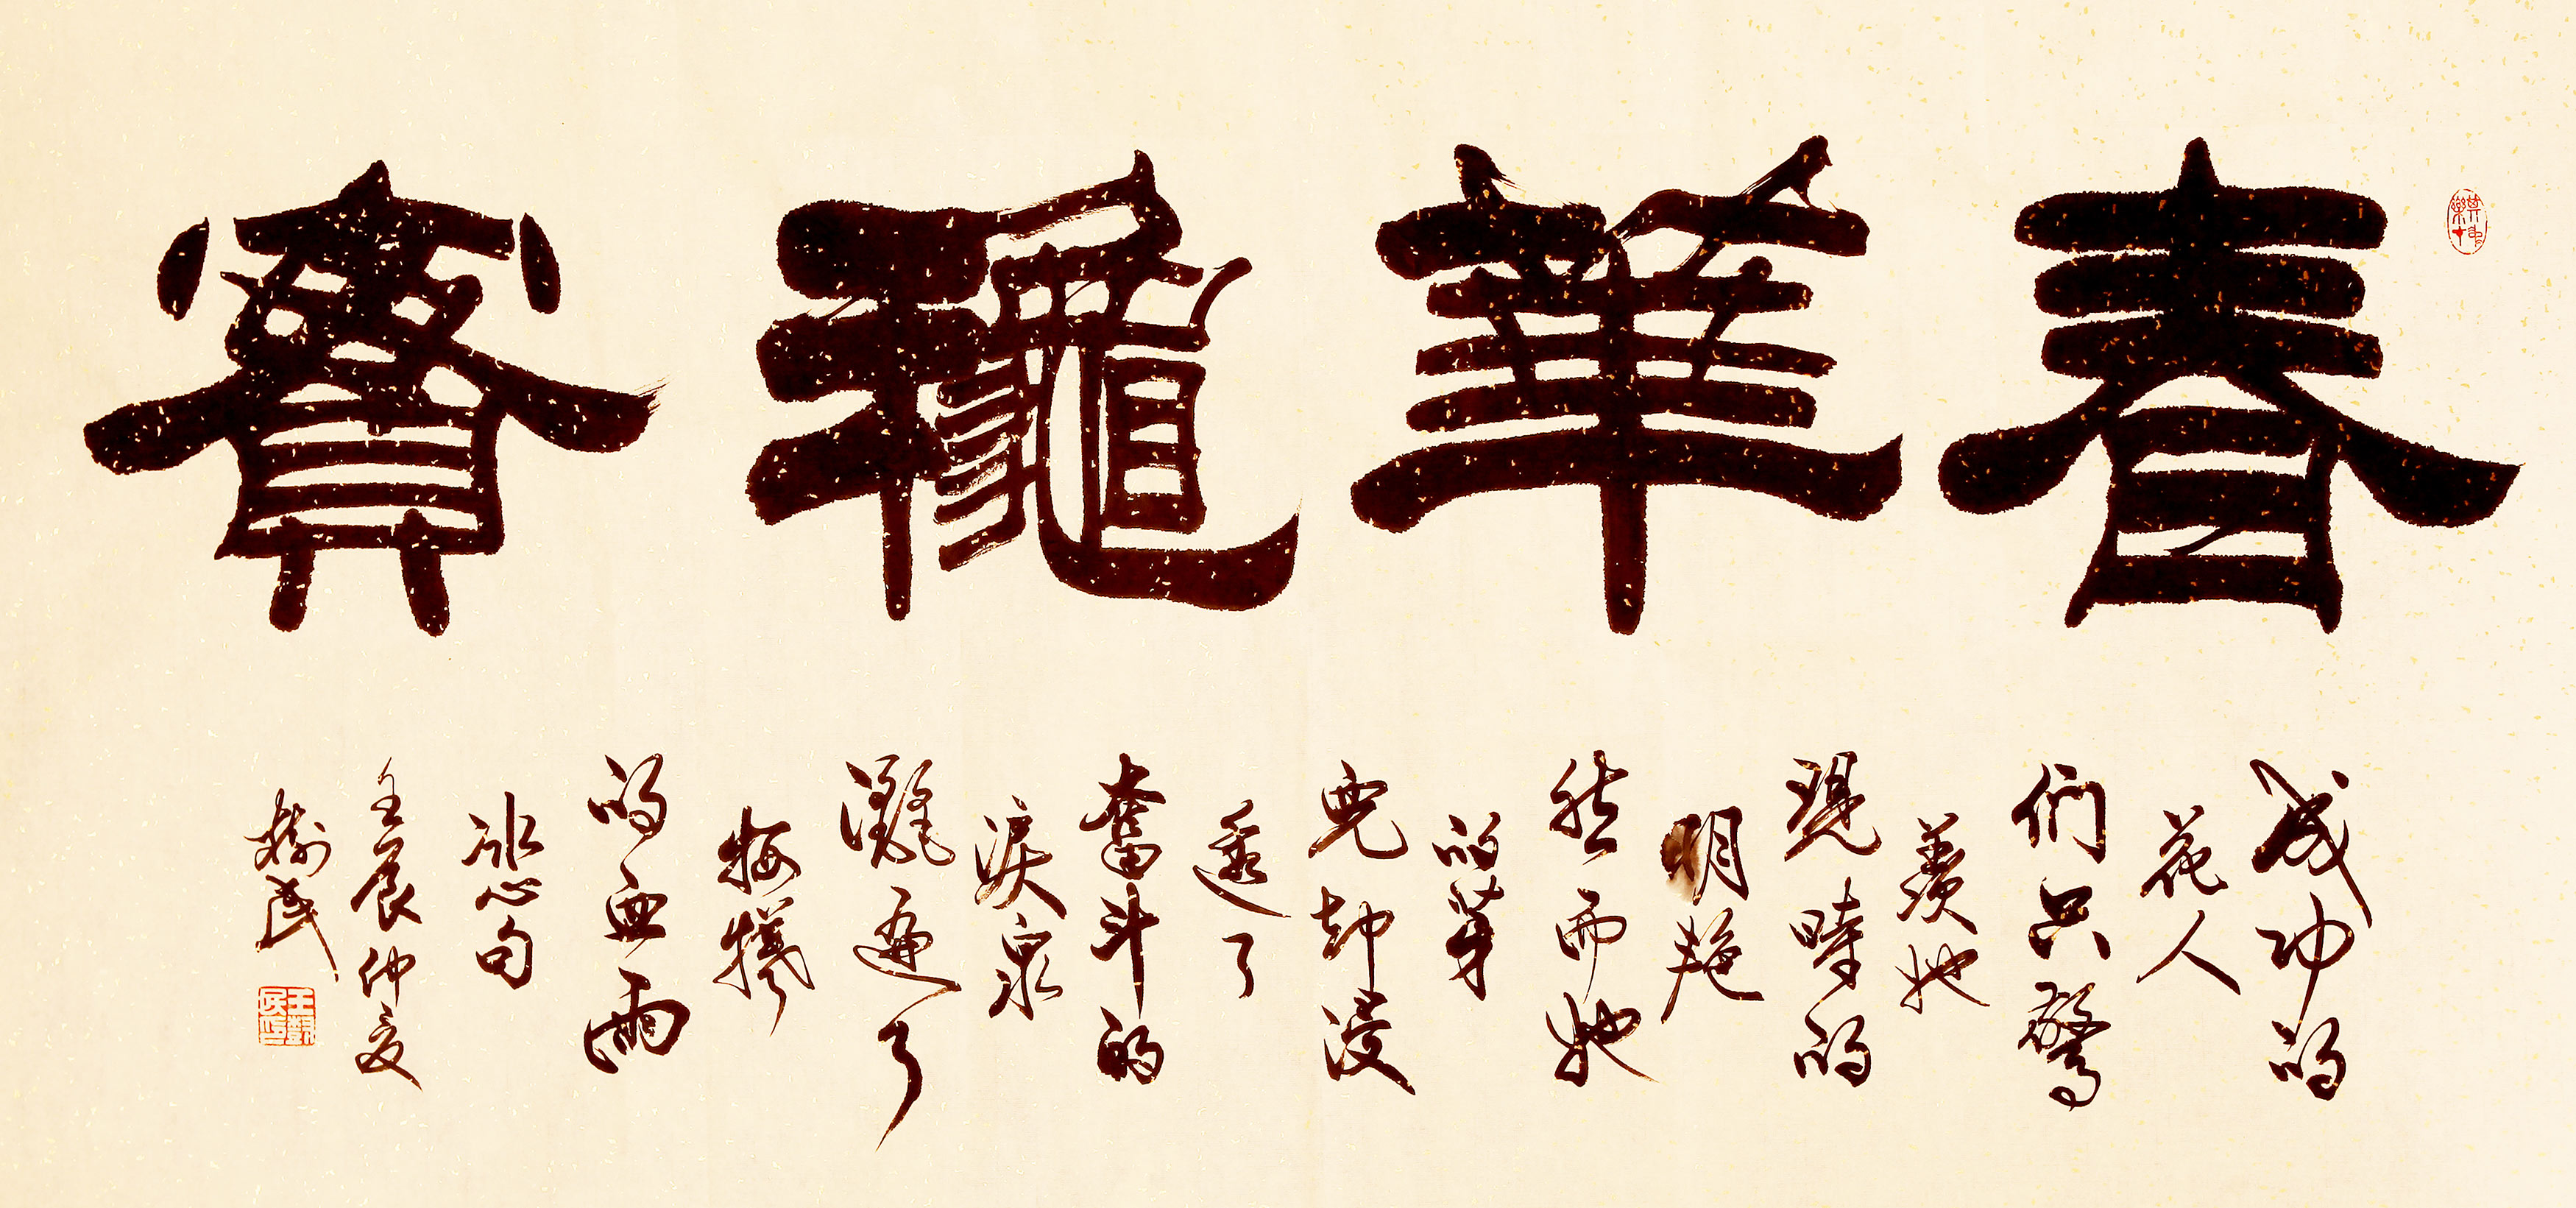 春華龝實
成功的
花人
们只驚
羡她
現時的
明艳
然而她
的芽
兒却浸
透了
奮斗的
淚泉
灑遍了
牲犧
的血雨
冰心句
壬辰仲夏
樹民